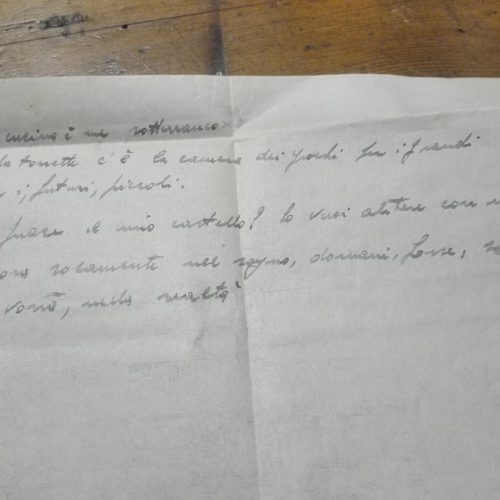 cucina è un sotterraneo
la torretta c'è la camera dei giochi per i grandi
i, futuri, piccoli.
piace il mio castello? Lo vuoi abitare con
ora solamente nel sogno, domani, forse, se
vorrà, nella realtà